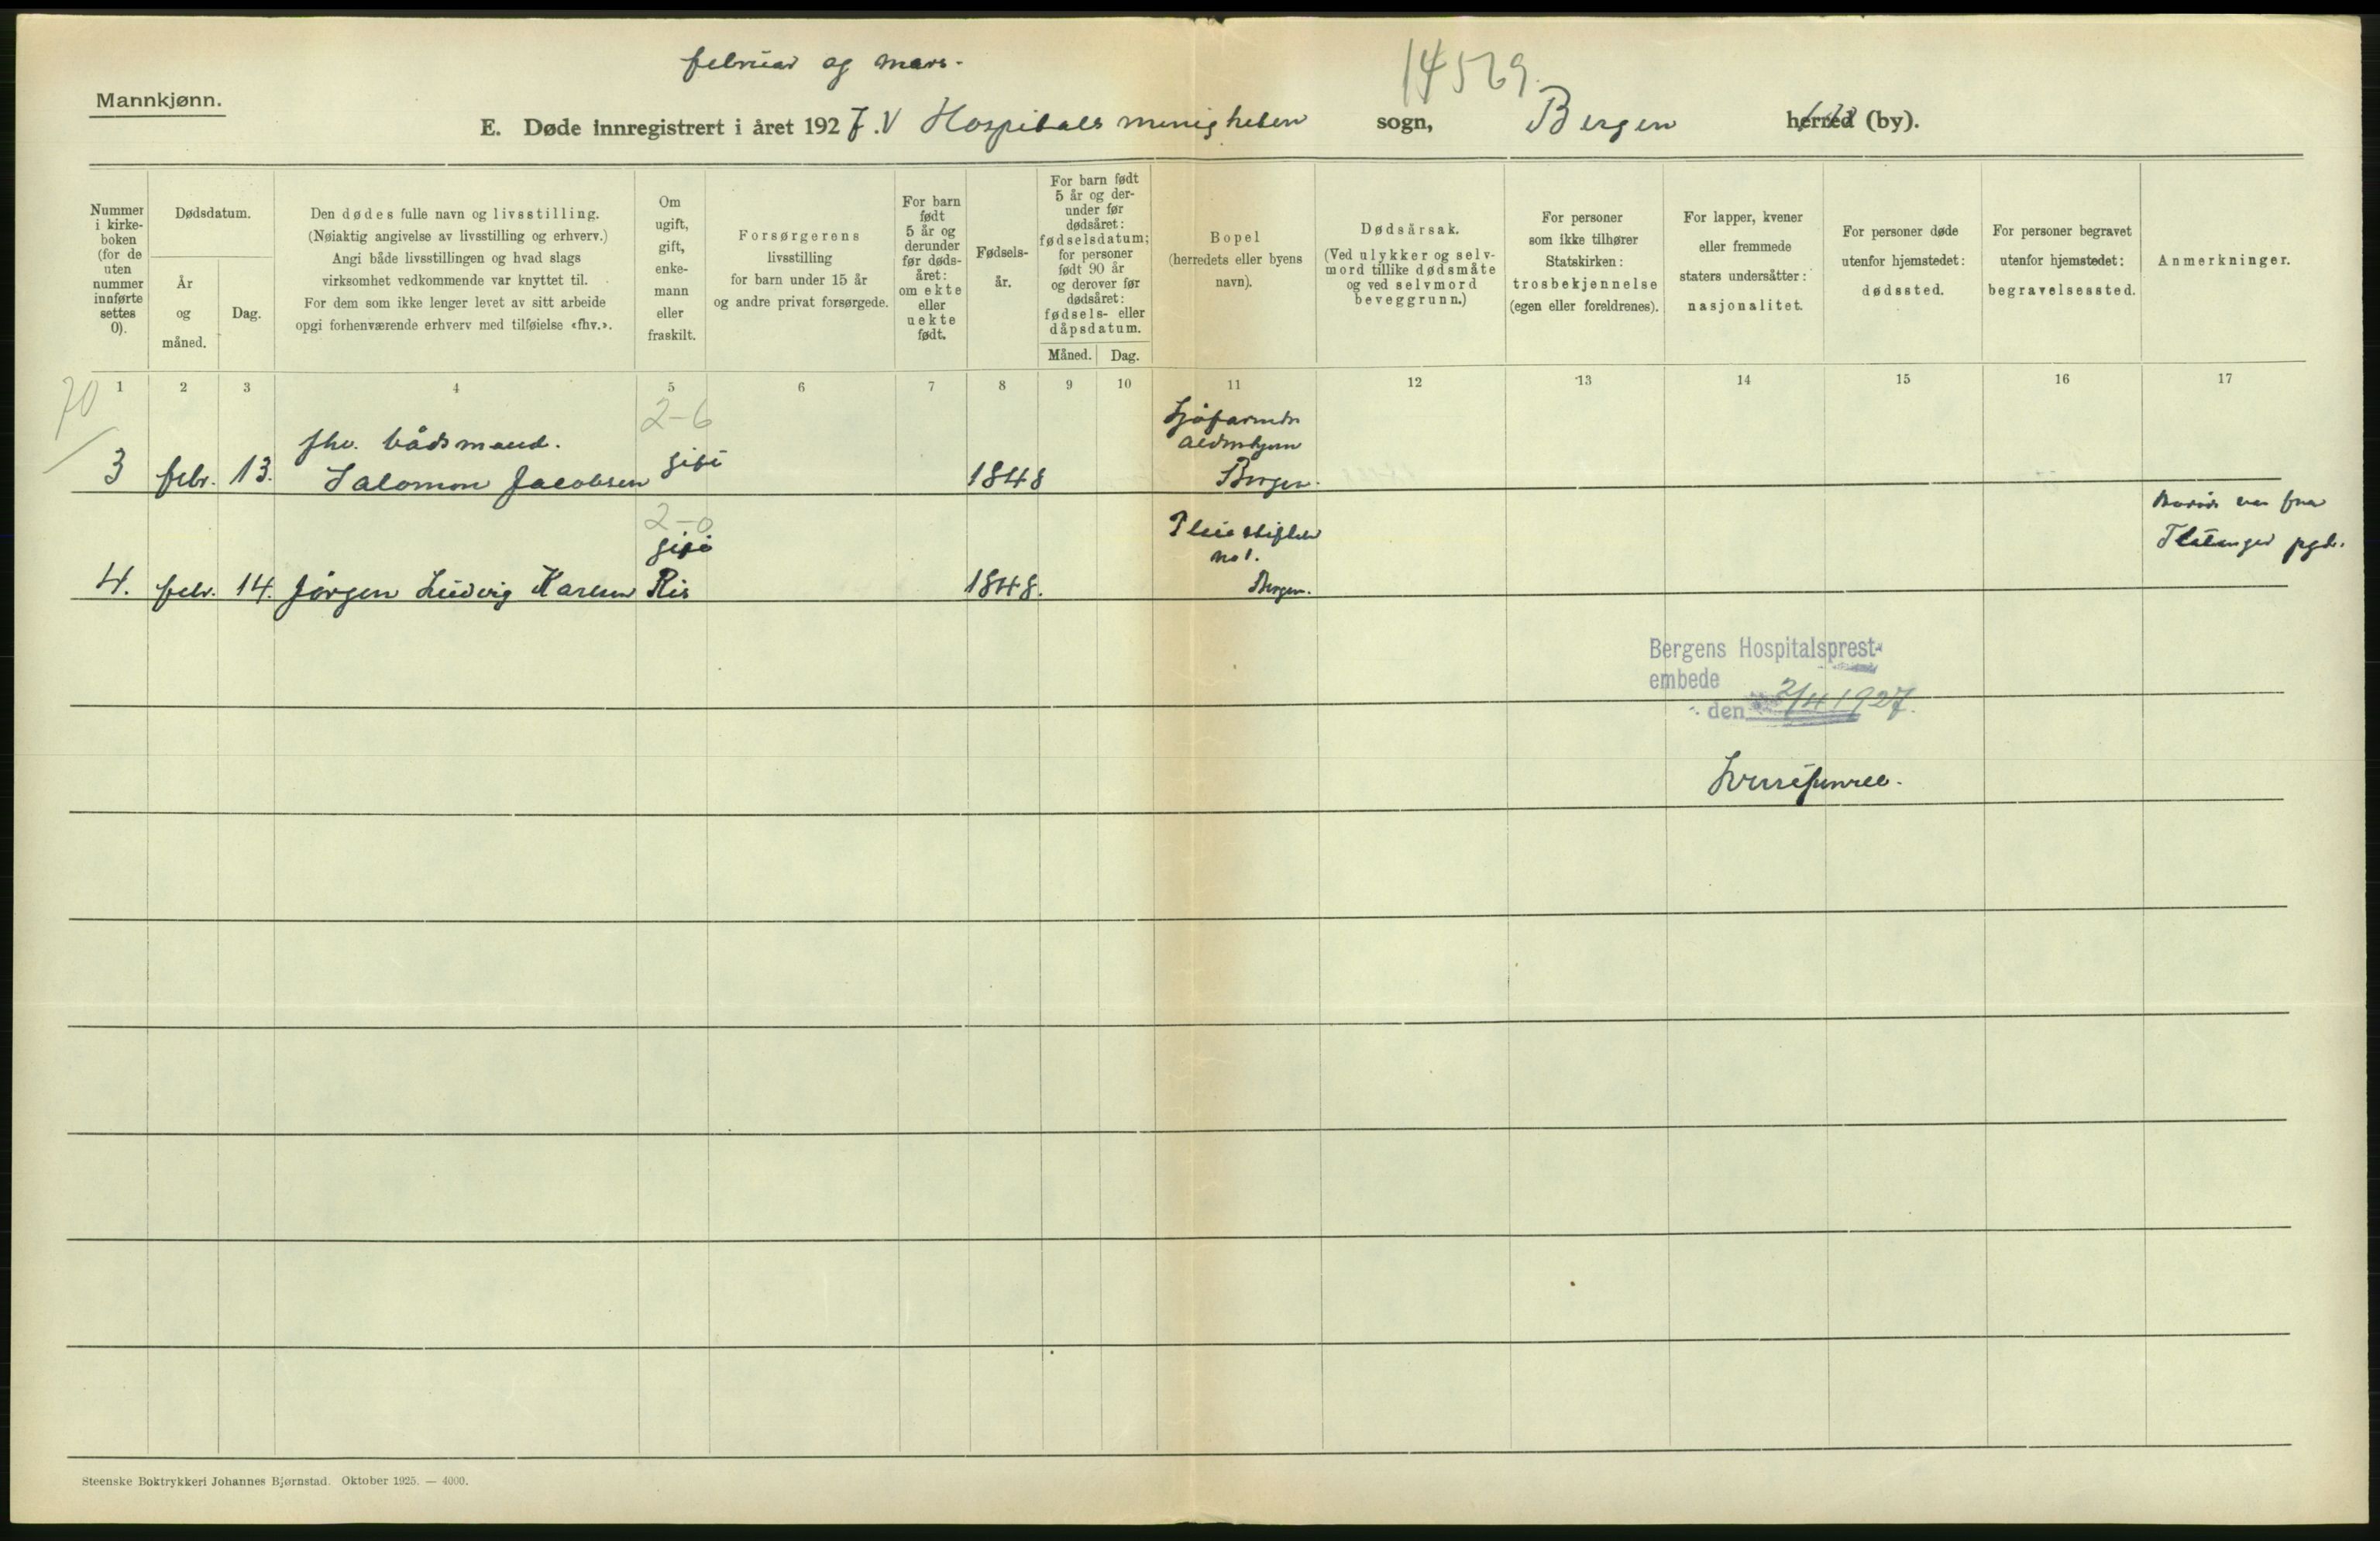 februar og mars.
14569.
Mannkjønn.
E. Døde innregistrert i året 1927. V Hospitalsmenigheten sogn, Bergen herred (by).
Nummer i kirkeboken (for de uten nummer innførte settes 0).
Dødsdatum.
År og måned.
Dag.
Den dødes fulle navn og livsstilling.
(Nøiaktig angivelse av livsstilling og erhverv.)
Angi både livsstillingen og hvad slags
virksomhet vedkommende var knyttet til.
For dem som ikke lenger levet av sitt arbeide
opgi forhenværende erhverv med tilføielse «fhv.».
Om ugift, gift, enkemann eller fraskilt.
Forsørgerens
livsstilling
for barn under 15 år
og andre privat forsørgede.
For barn født 5 år og derunder før dødsåret: om ekte eller uekte født.
Fødselsår.
For barn født 5 år og derunder før dødsåret: fødselsdatum; for personer født 90 år og derover før dødsåret: fødsels- eller dåpsdatum.
Måned.
Dag.
Bopel
(herredets eller byens
navn).
Dødsårsak.
(Ved ulykker og selvmord tillike dødsmåte og ved selvmord beveggrunn.)
For personer
som ikke tilhører
Statskirken:
trosbekjennelse
(egen eller foreldrenes).
For lapper, kvener
eller fremmede
staters undersåtter:
nasjonalitet.
For personer døde
utenfor hjemstedet:
dødssted.
For personer begravet
utenfor hjemstedet:
begravelsessted.
Anmerkninger.
1 2 3 4 5 6 7 8 9 10 11 12 13 14 15 16 17
70
2-6
fhv. bådsmand.
3 febr. 13. Salomon Jacobsen gift 1848
Sjøfarendes
Aldershjem
Bergen.
2-0
gift
4. febr. 14. Jørgen Ludvig Karlsen Ris 1848.
Pleiestiftelsen
no 1.
Bergen.
var fra
Flatanger pgd.
Bergens Hospitalsprest-
embede
den 2/4 1927.
Steenske Boktrykkeri Johannes Bjørnstad. Oktober 1925. — 4000.